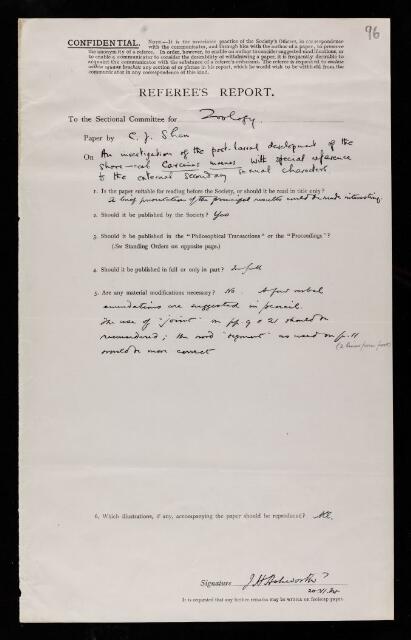 96
CONFIDENTIAL. NOTE—It is the invariable practice of the Society's Officers, in correspondence
with the communicator, and through him with the author of a paper, to preserve
the anonymity of a referee. In order, however, to enable an author to consider suggested modifications, or
to enable a communicator to consider the desirability of withdrawing a paper, it is frequently desirable to
acquaint the communicator with the substance of a referee's criticisms. The referee is requested to enclose
within square brackets any section of or phrase in his report, which he would wish to be withheld from the
communicator in any correspondence of this kind.
REFEREE'S REPORT.
To the Sectional Committee for Zoology.
Paper by C. J. Shen
On An investigation of the post-larval development of the
shore-crab Carcinus maenas with special reference
to the external secondary sexual characters
1. Is the paper suitable for reading before the Society, or should it be read in title only?
A brief presentation of the principal results could be made interesting.
2. Should it be published by the Society? Yes
3. Should it be published in the "Philosophical Transactions" or the "Proceedings"?
(See Standing Orders on opposite page.)
4. Should it be published in full or only in part? In full
5. Are any material modifications necessary? No. A few verbal
emendations are suggested in pencil.
The use of "joint" on pp. 9 & 21 should be
reconsidered; the word "segment" as used on p. 11
would be more correct
6. Which illustrations, if any, accompanying the paper should be reproduced? All.
Signature J H Ashworth
It is requested that any further remarks may be written on foolscap paper.